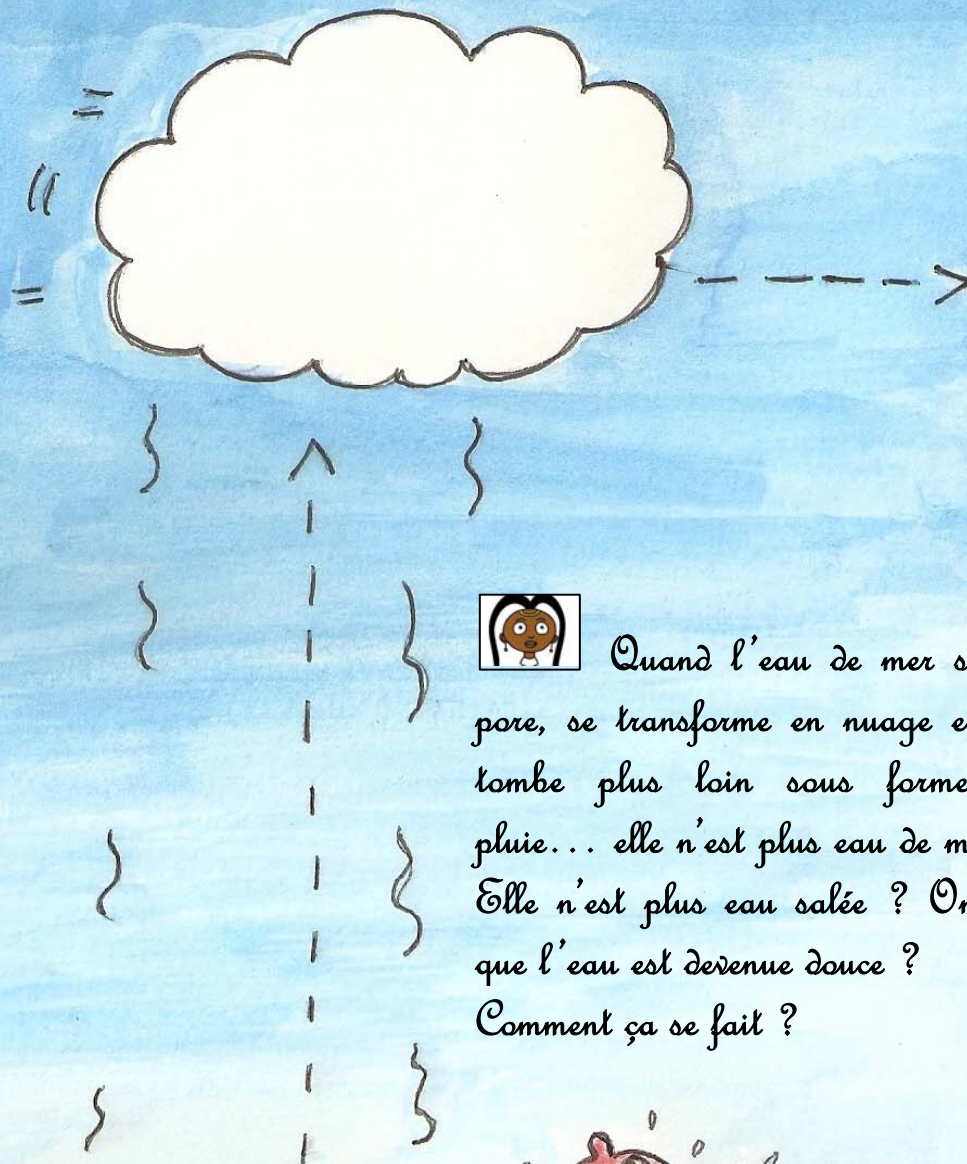 Quand l'eau de mer s
pore, se transforme en nuage e
tombe plus loin sous forme
pluie... elle n'est plus eau de m
Elle n'est plus eau salée ? On
que l'eau est devenue douce ?
Comment ça se fait ?